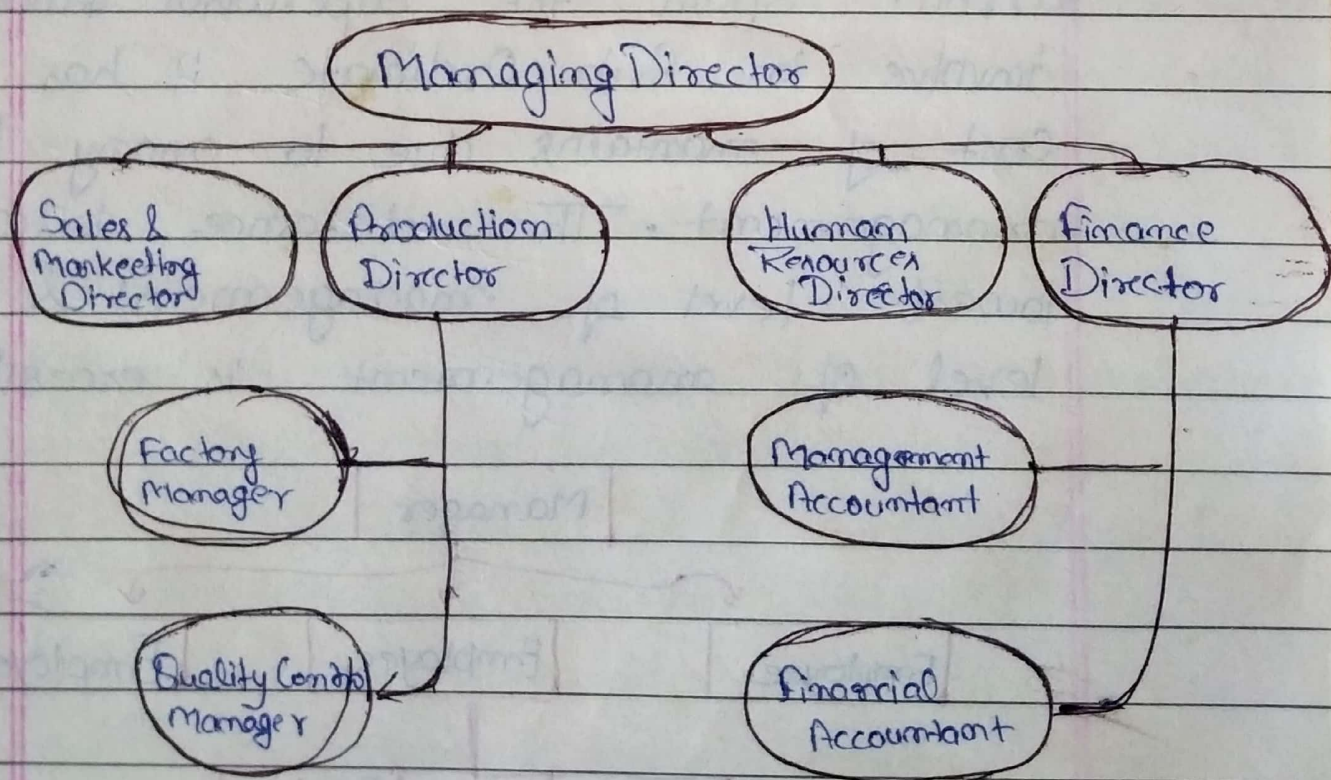 Managing Director
Sales &
Markeeting
Director
Production
Director
Human
Resources
Director
Finance
Director
Factory
Manager
Management
Accountant
Quality Control
Manager
Financial
Accountant
Manager
Employee